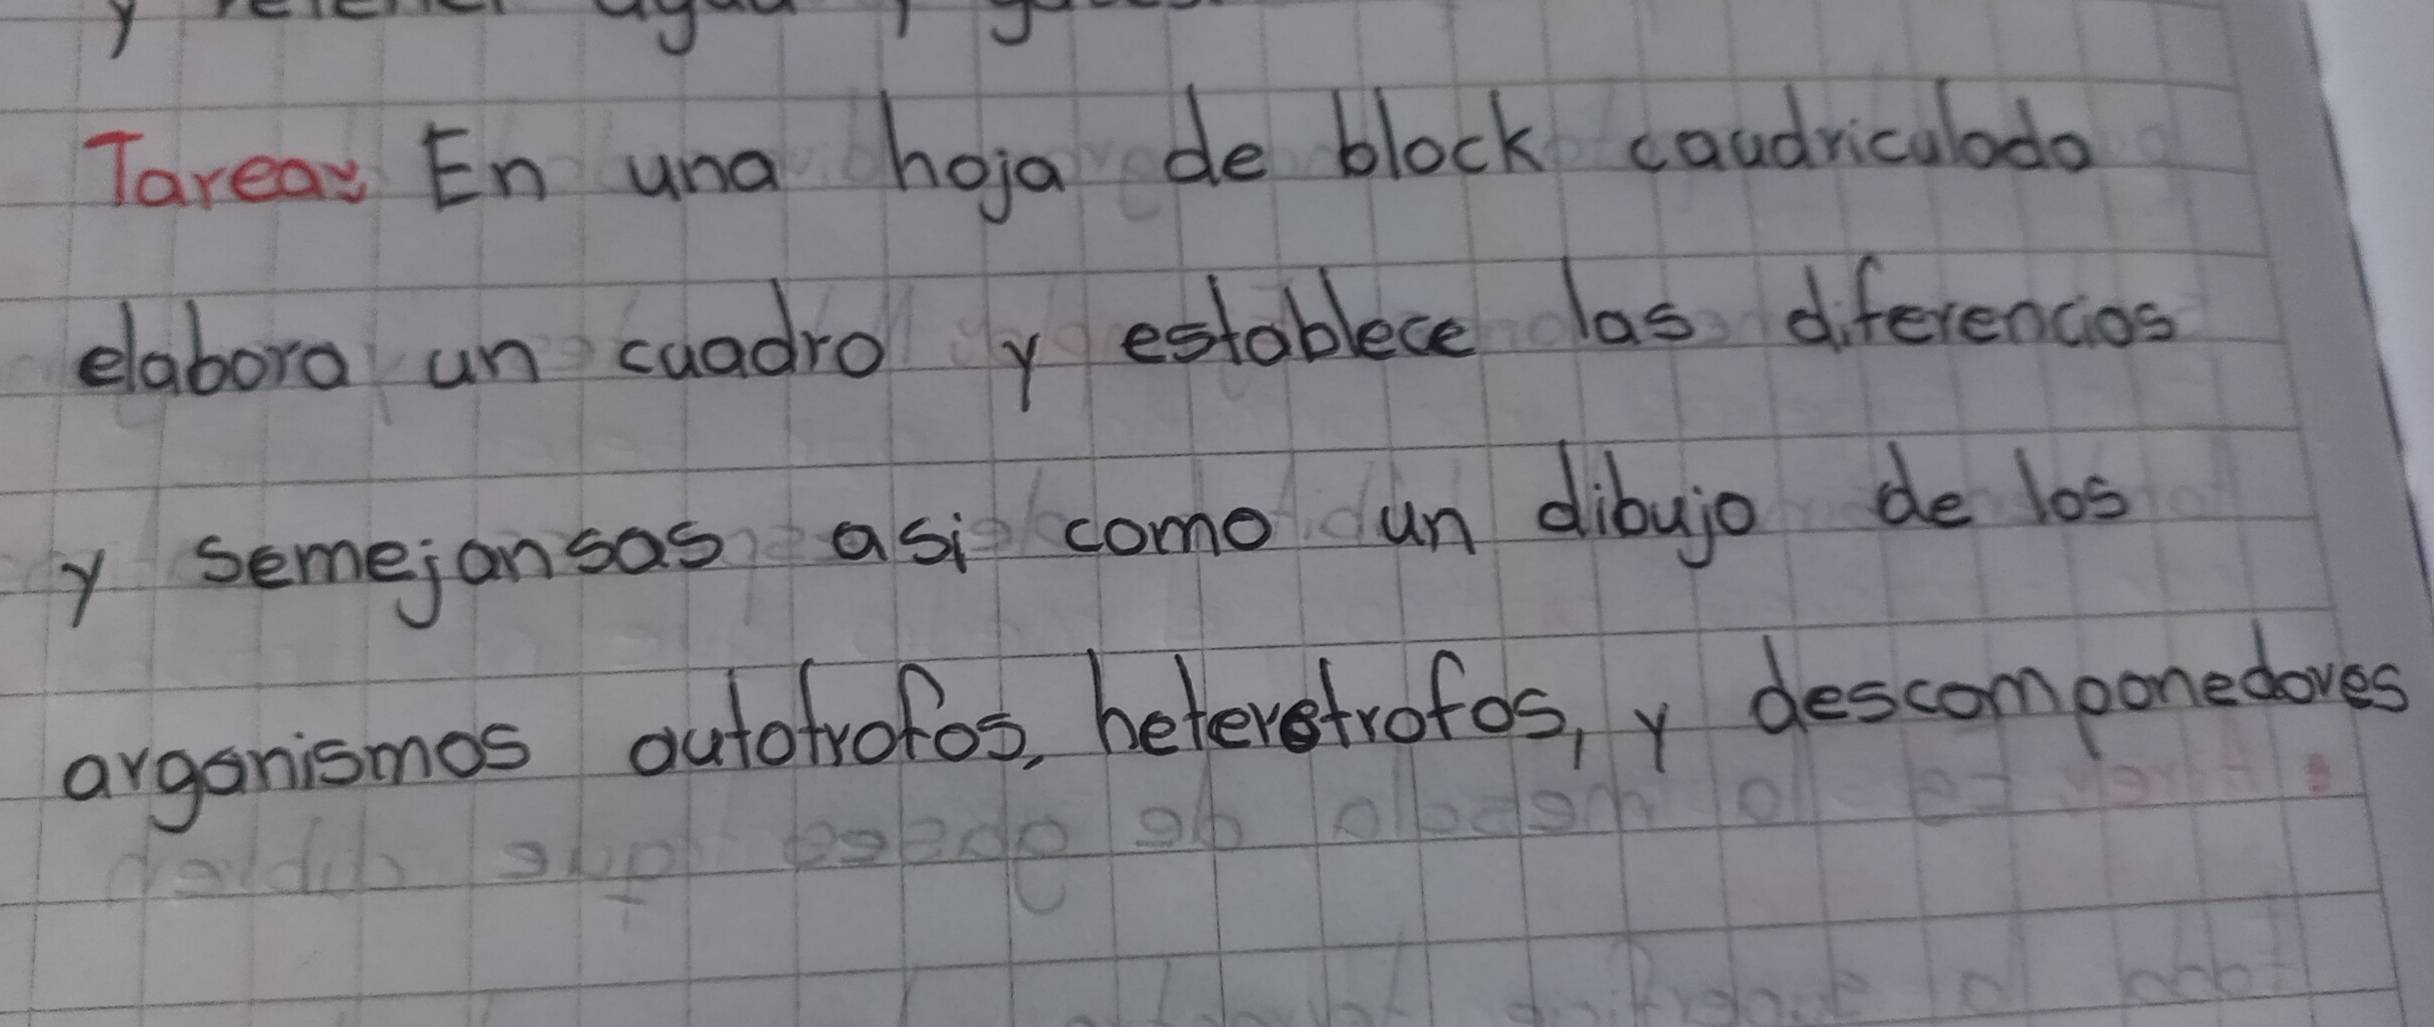 y retener agua y
Tarea: En una hoja de block caudriculado
elabora un cuadro y establece las diferencias
y semejansas asi como un dibujo de los
organismos autotrofos, heterotrofos, y descomponedores